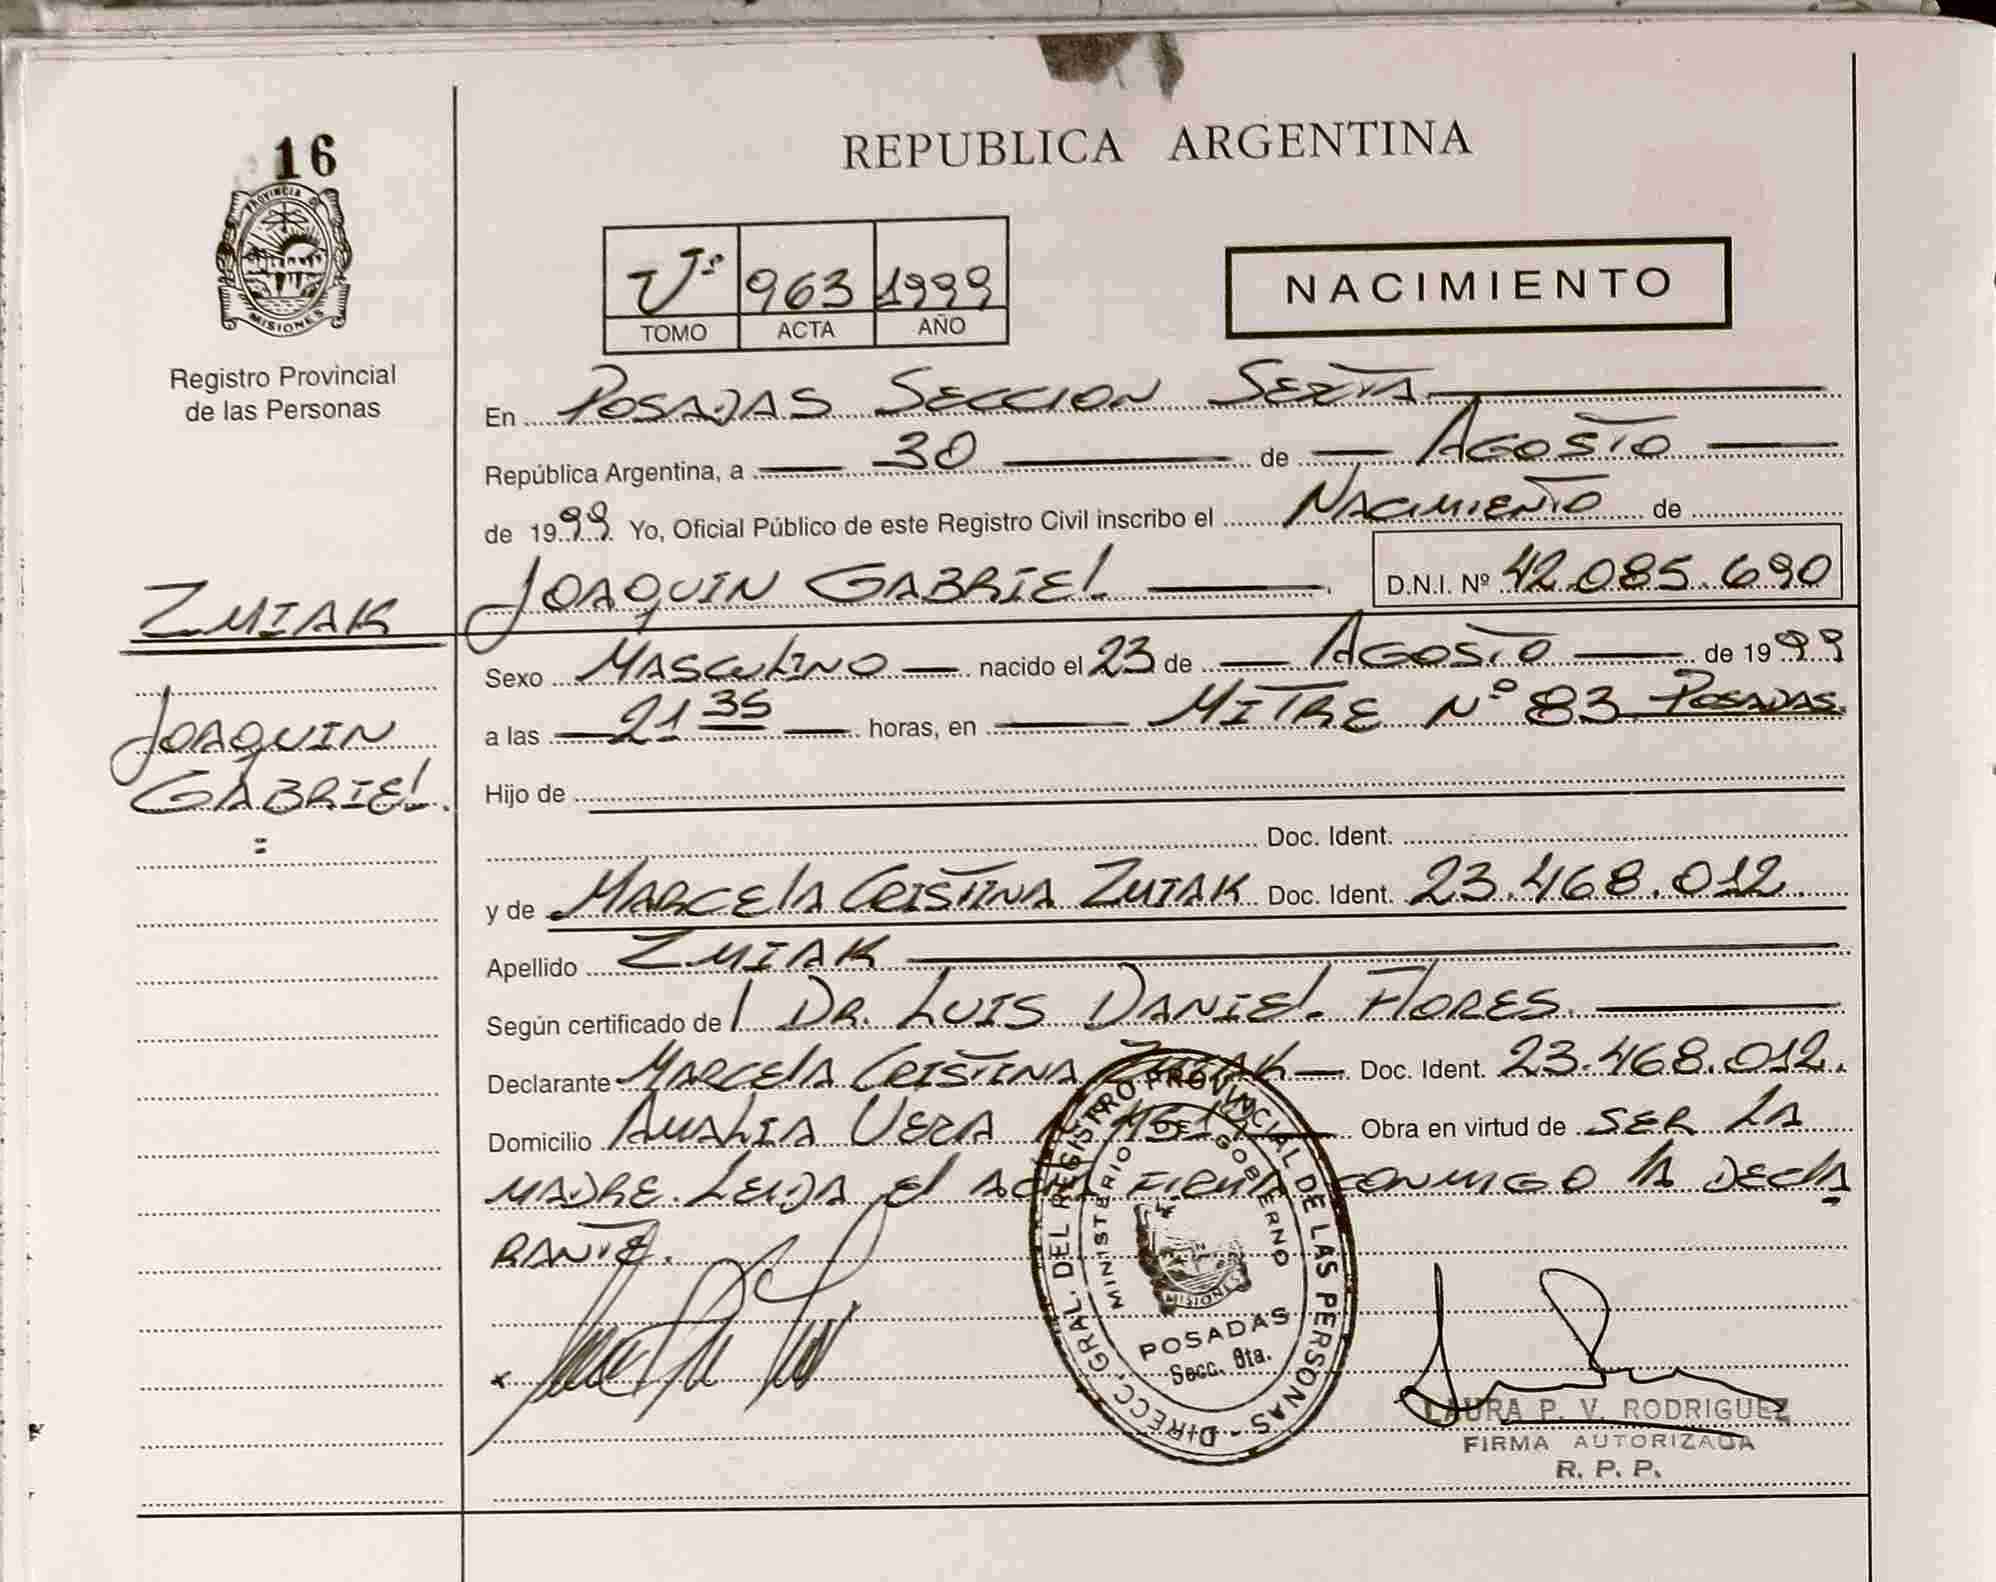 16
PROVINCIA D
MISIONES
Registro Provincial
de las Personas
ZMIAK
JOAQUIN
GABRIEL.
REPUBLICA ARGENTINA
963 1999
TOMO ACTA AÑO
NACIMIENTO
En POSADAS SECCION SEXTA
República Argentina, a 30 de AGOSTO
de 1999. Yo, Oficial Público de este Registro Civil inscribo el NACIMIENTO de
JOAQUIN GABRIEL. D.N.I. Nº 42.085.690
Sexo MASCULINO nacido el 23 de AGOSTO de 1999
a las 21 35 horas, en MITRE Nº 83 POSADAS.
Hijo de
Doc. Ident.
y de MARCELA CRISTINA ZMIAK Doc. Ident. 23.468.012.
Apellido ZMIAK
Según certificado del DR. LUIS DANIEL FLORES.
Declarante MARCELA CRISTINA ZMIAK Doc. Ident. 23.468.012.
Domicilio AMALIA VERA Obra en virtud de SER LA
MADRE. LEIDA EL ACTA FIRMA CONMIGO LA DECLA
RANTE.
DIRECC. GRAL. DEL REGISTRO PROVINCIAL DE LAS PERSONAS
MINISTERIO DE GOBIERNO
MISIONES
POSADAS
Secc. 6ta.
LAURA P. V. RODRIGUEZ
FIRMA AUTORIZADA
R. P. P.